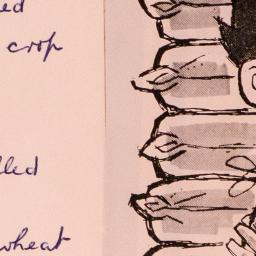 ed
crop
lled
wheat